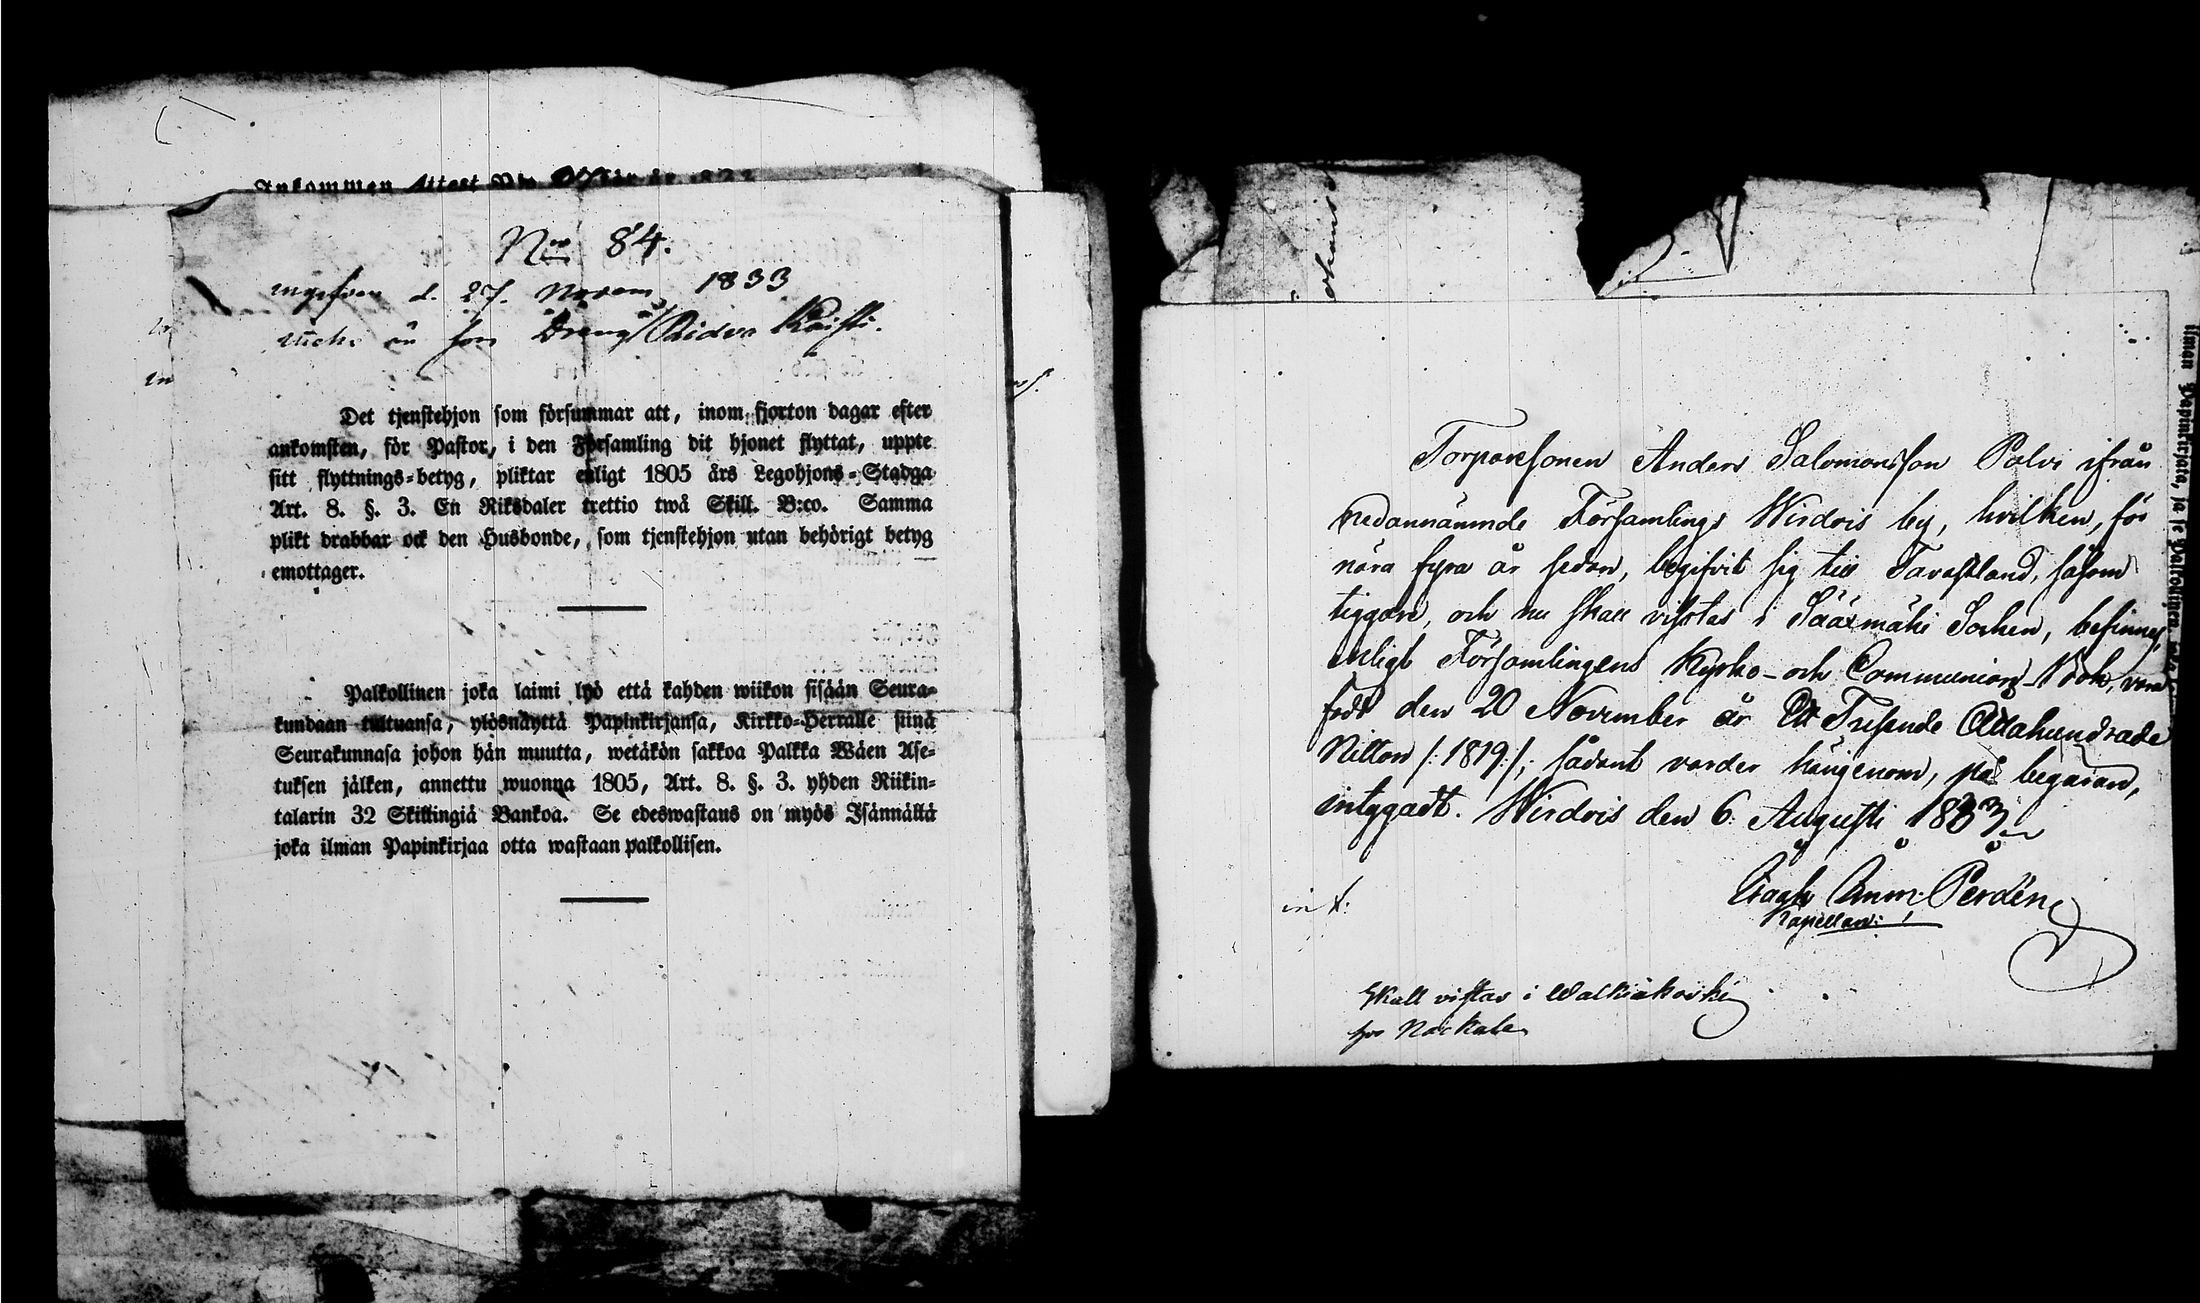 Ankommen Attest No
No 84.
ingifven d. 27. Novem 1833
Det tjenstehjon som försummar att, inom fjorton dagar efter
ankomsten, för Pastor, i den Församling dit hjonet flyttat, uppte
sitt flyttnings-betyg, pliktar enligt 1805 års Legohjons-Stadga
Art. 8. §. 3. En Riksdaler trettio twå Skill. B:co. Samma
plikt drabbar ock den Husbonde, som tjenstehjon utan behörigt betyg
emottager.
Palkollinen joka laimi lyö että kahden wiikon sisään Seura-
kundaan tultuansa, ylösnäyttä Papinkirjansa, Kirkko-Herralle siinä
Seurakunnasa johon hän muutta, wetäkön sakkoa Palkka Wäen Ase-
tuksen jälken, annettu wuonna 1805, Art. 8. §. 3. yhden Riikin-
talarin 32 Skillingiä Bankoa. Se edeswastaus on myös Isännällä
joka ilman Papinkirjaa otta wastaan palkollisen.
Torparesonen Anders Salomonsson Polvi ifrån
nedannämnde Församlings Wirdois by, hvilken, för
nära fyra år sedan, begifvit sig till Tavastland, såsom
tiggare, och nu skall vistas i Sääxmäki Socken, befinnes,
enligt Församlingens Kyrko- och Communions-Bok, vara
född den 20 November år Ett Tusende Ottahundrade
Nitton /:1819:/; sådant varder härigenom, på begäran,
intygadt. Wirdois den 6 Augusti 1833
Kapellan:
int:
Skall vistas i Walkiakoski
hos Nackala
ilman Papinkirjata, ja se Palkollinen